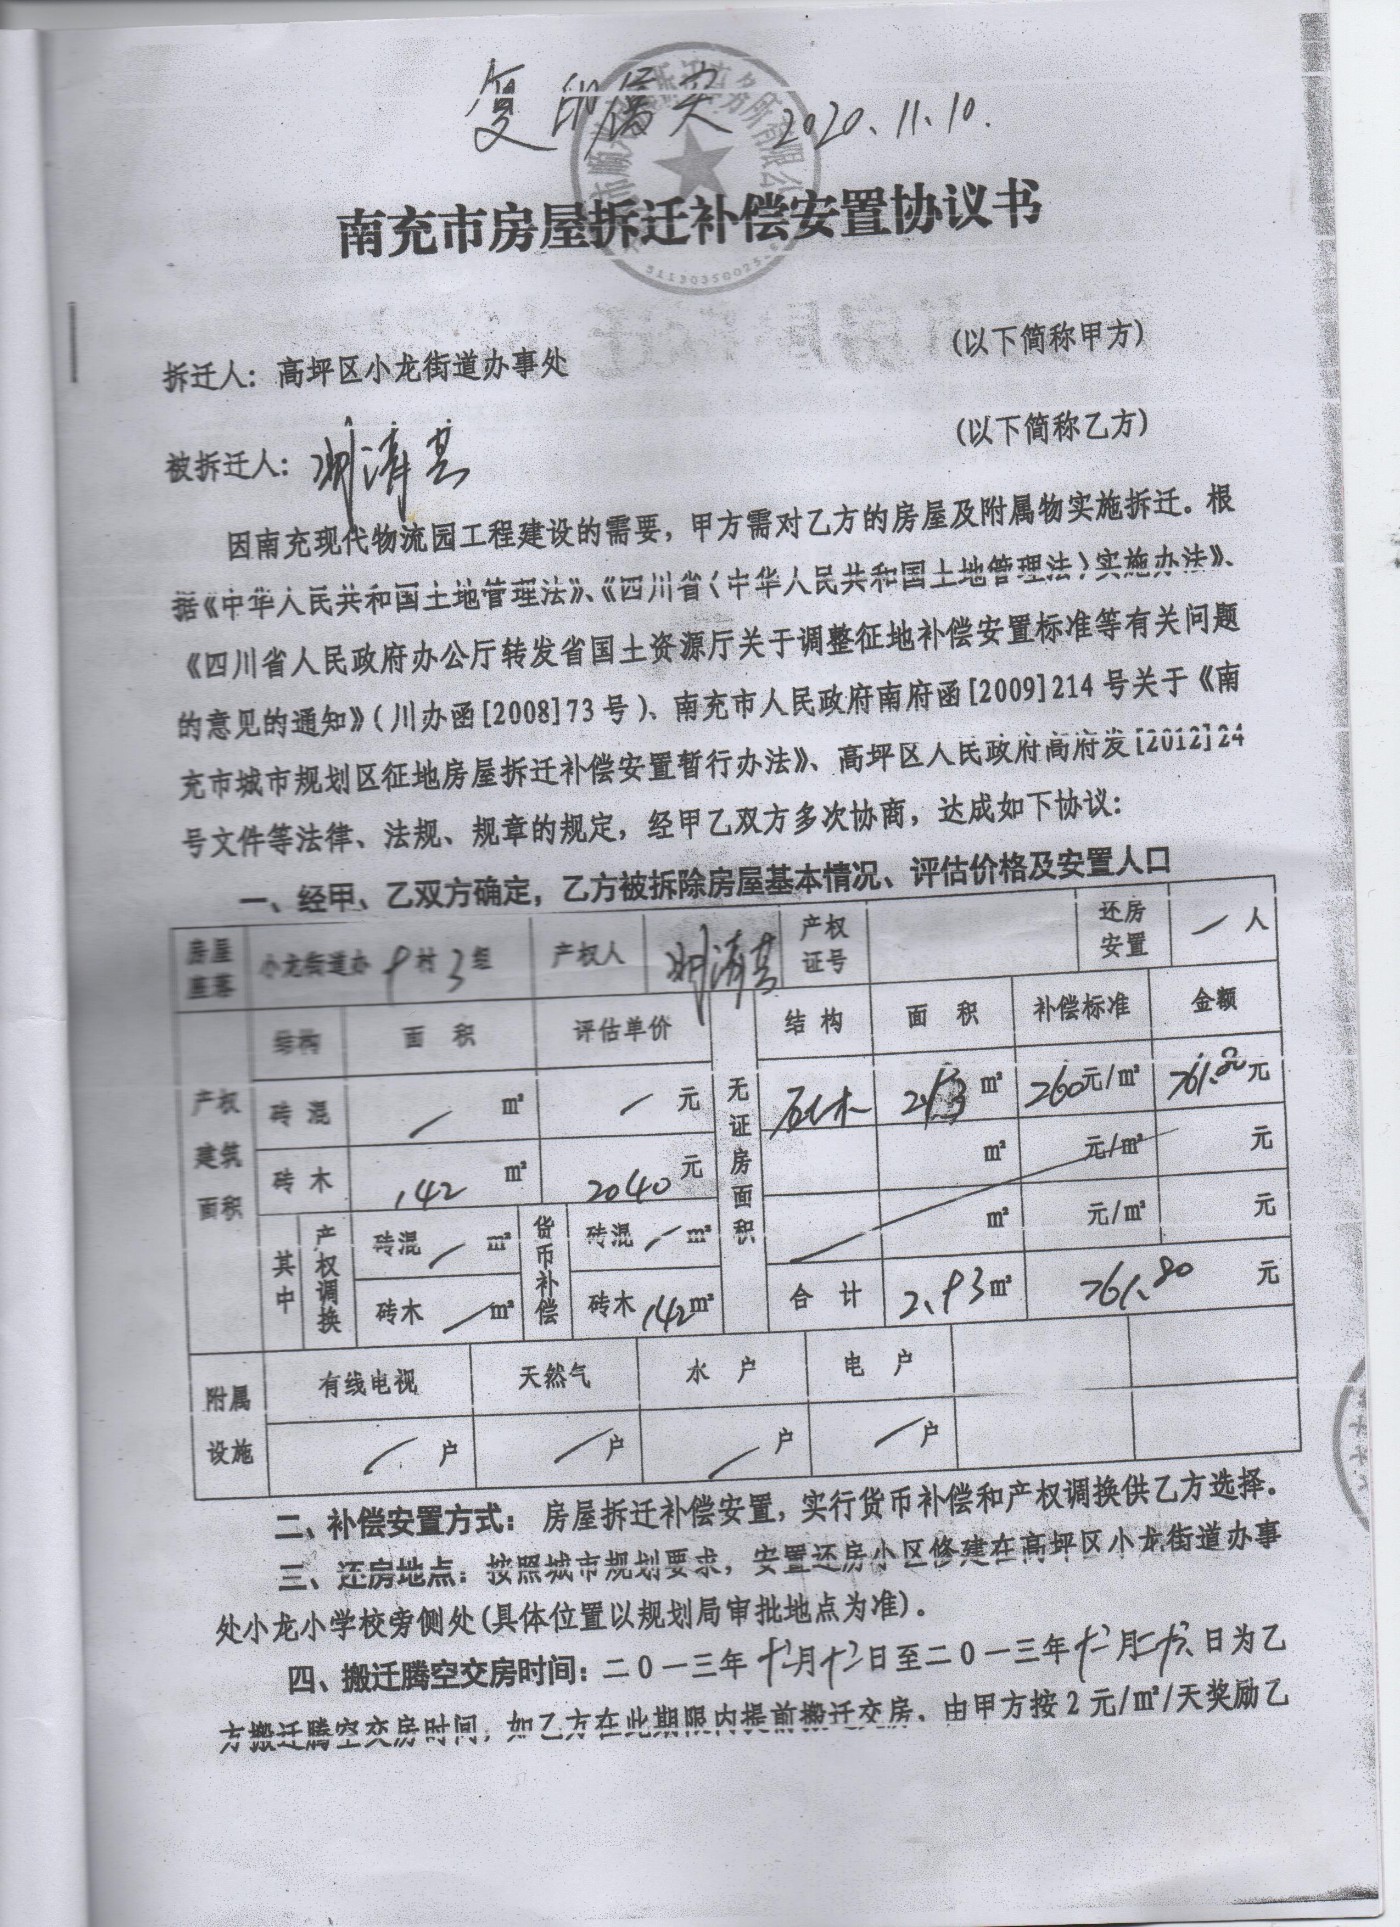 复印属实 2020.11.10.
南充市房屋拆迁补偿安置协议书
拆迁人：高坪区小龙街道办事处 (以下简称甲方)
被拆迁人： (以下简称乙方)
因南充现代物流园工程建设的需要，甲方需对乙方的房屋及附属物实施拆迁。根
据《中华人民共和国土地管理法》、《四川省〈中华人民共和国土地管理法〉实施办法》、
《四川省人民政府办公厅转发省国土资源厅关于调整征地补偿安置标准等有关问题
的意见的通知》(川办函[2008]73号)、南充市人民政府南府函[2009]214号关于《南
充市城市规划区征地房屋拆迁补偿安置暂行办法》、高坪区人民政府高府发[2012]24
号文件等法律、法规、规章的规定，经甲乙双方多次协商，达成如下协议：
一、经甲、乙双方确定，乙方被拆除房屋基本情况、评估价格及安置人口
房屋座落 小龙街道办 村 3 组 产权人 产权证号 还房安置 人
产权建筑面积 结构 面积 评估单价 无证房面积 结构 面积 补偿标准 金额
砖混 m² 元 石木 2.93 m² 260元/m² 761.80元
砖木 142 m² 2040元 m² 元/m² 元
其中 产权调换 砖混 m² 货币补偿 砖混 m² m² 元/m² 元
砖木 m² 砖木 142m² 合计 2.93m² 761.80 元
附属设施 有线电视 天然气 水户 电户
户 户 户 户
二、补偿安置方式：房屋拆迁补偿安置，实行货币补偿和产权调换供乙方选择。
三、还房地点：按照城市规划要求，安置还房小区修建在高坪区小龙街道办事
处小龙小学校旁侧处(具体位置以规划局审批地点为准)。
四、搬迁腾空交房时间：二0一三年十二月十二日至二0一三年十二月 日为乙
方搬迁腾空交房时间，如乙方在此期限内提前搬迁交房，由甲方按2元/m²/天奖励乙